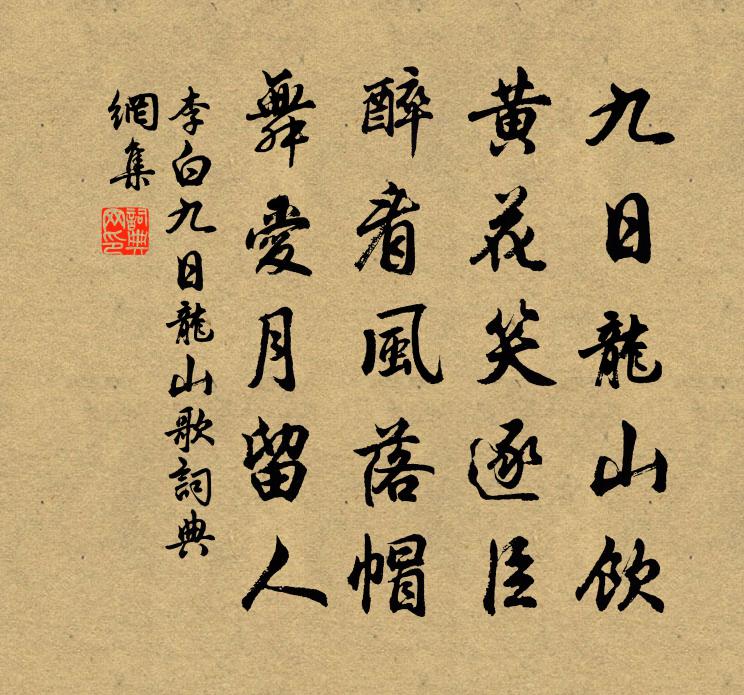 九日龍山飲
黃花笑逐臣
醉看風落帽
舞愛月留人
李白九日龍山歌詞典
網集
詞典網印